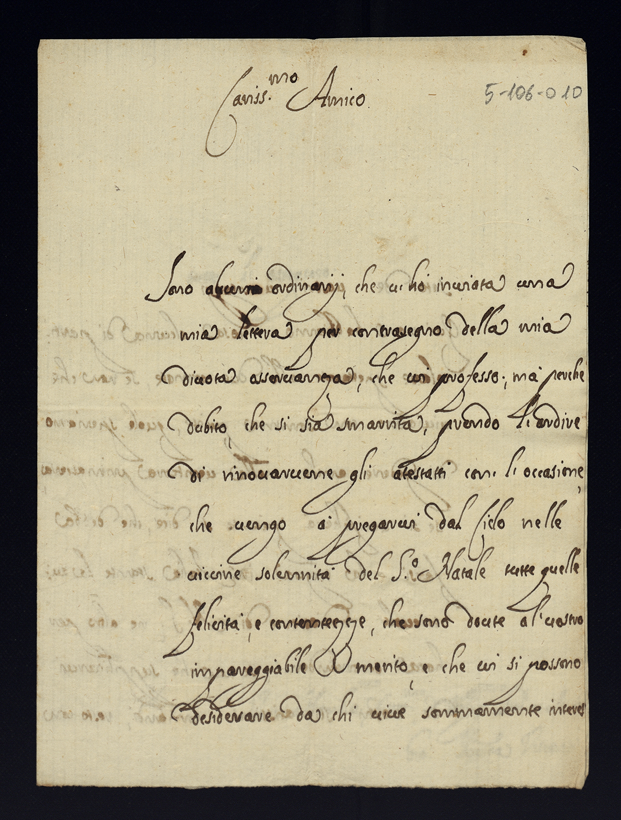 Cariss.mo Amico
5-106-010
Sono alcuni ordinarij, che vi hò inviata una
mia lettera per contrasegno della mia
divota osservanza, che vi professo; mà perche
dubito, che si sia smarrita, prendo l'ardire
di rinovarvene gli atestatti con l'occasione,
che vengo a pregarvi dal Cielo nelle
viccine solennità del S.o Natale tutte quelle
felicità, e contentezze, che sono dovute al vostro
impareggiabile merito, e che vi si possono
desiderare da chi vive sommamente interes